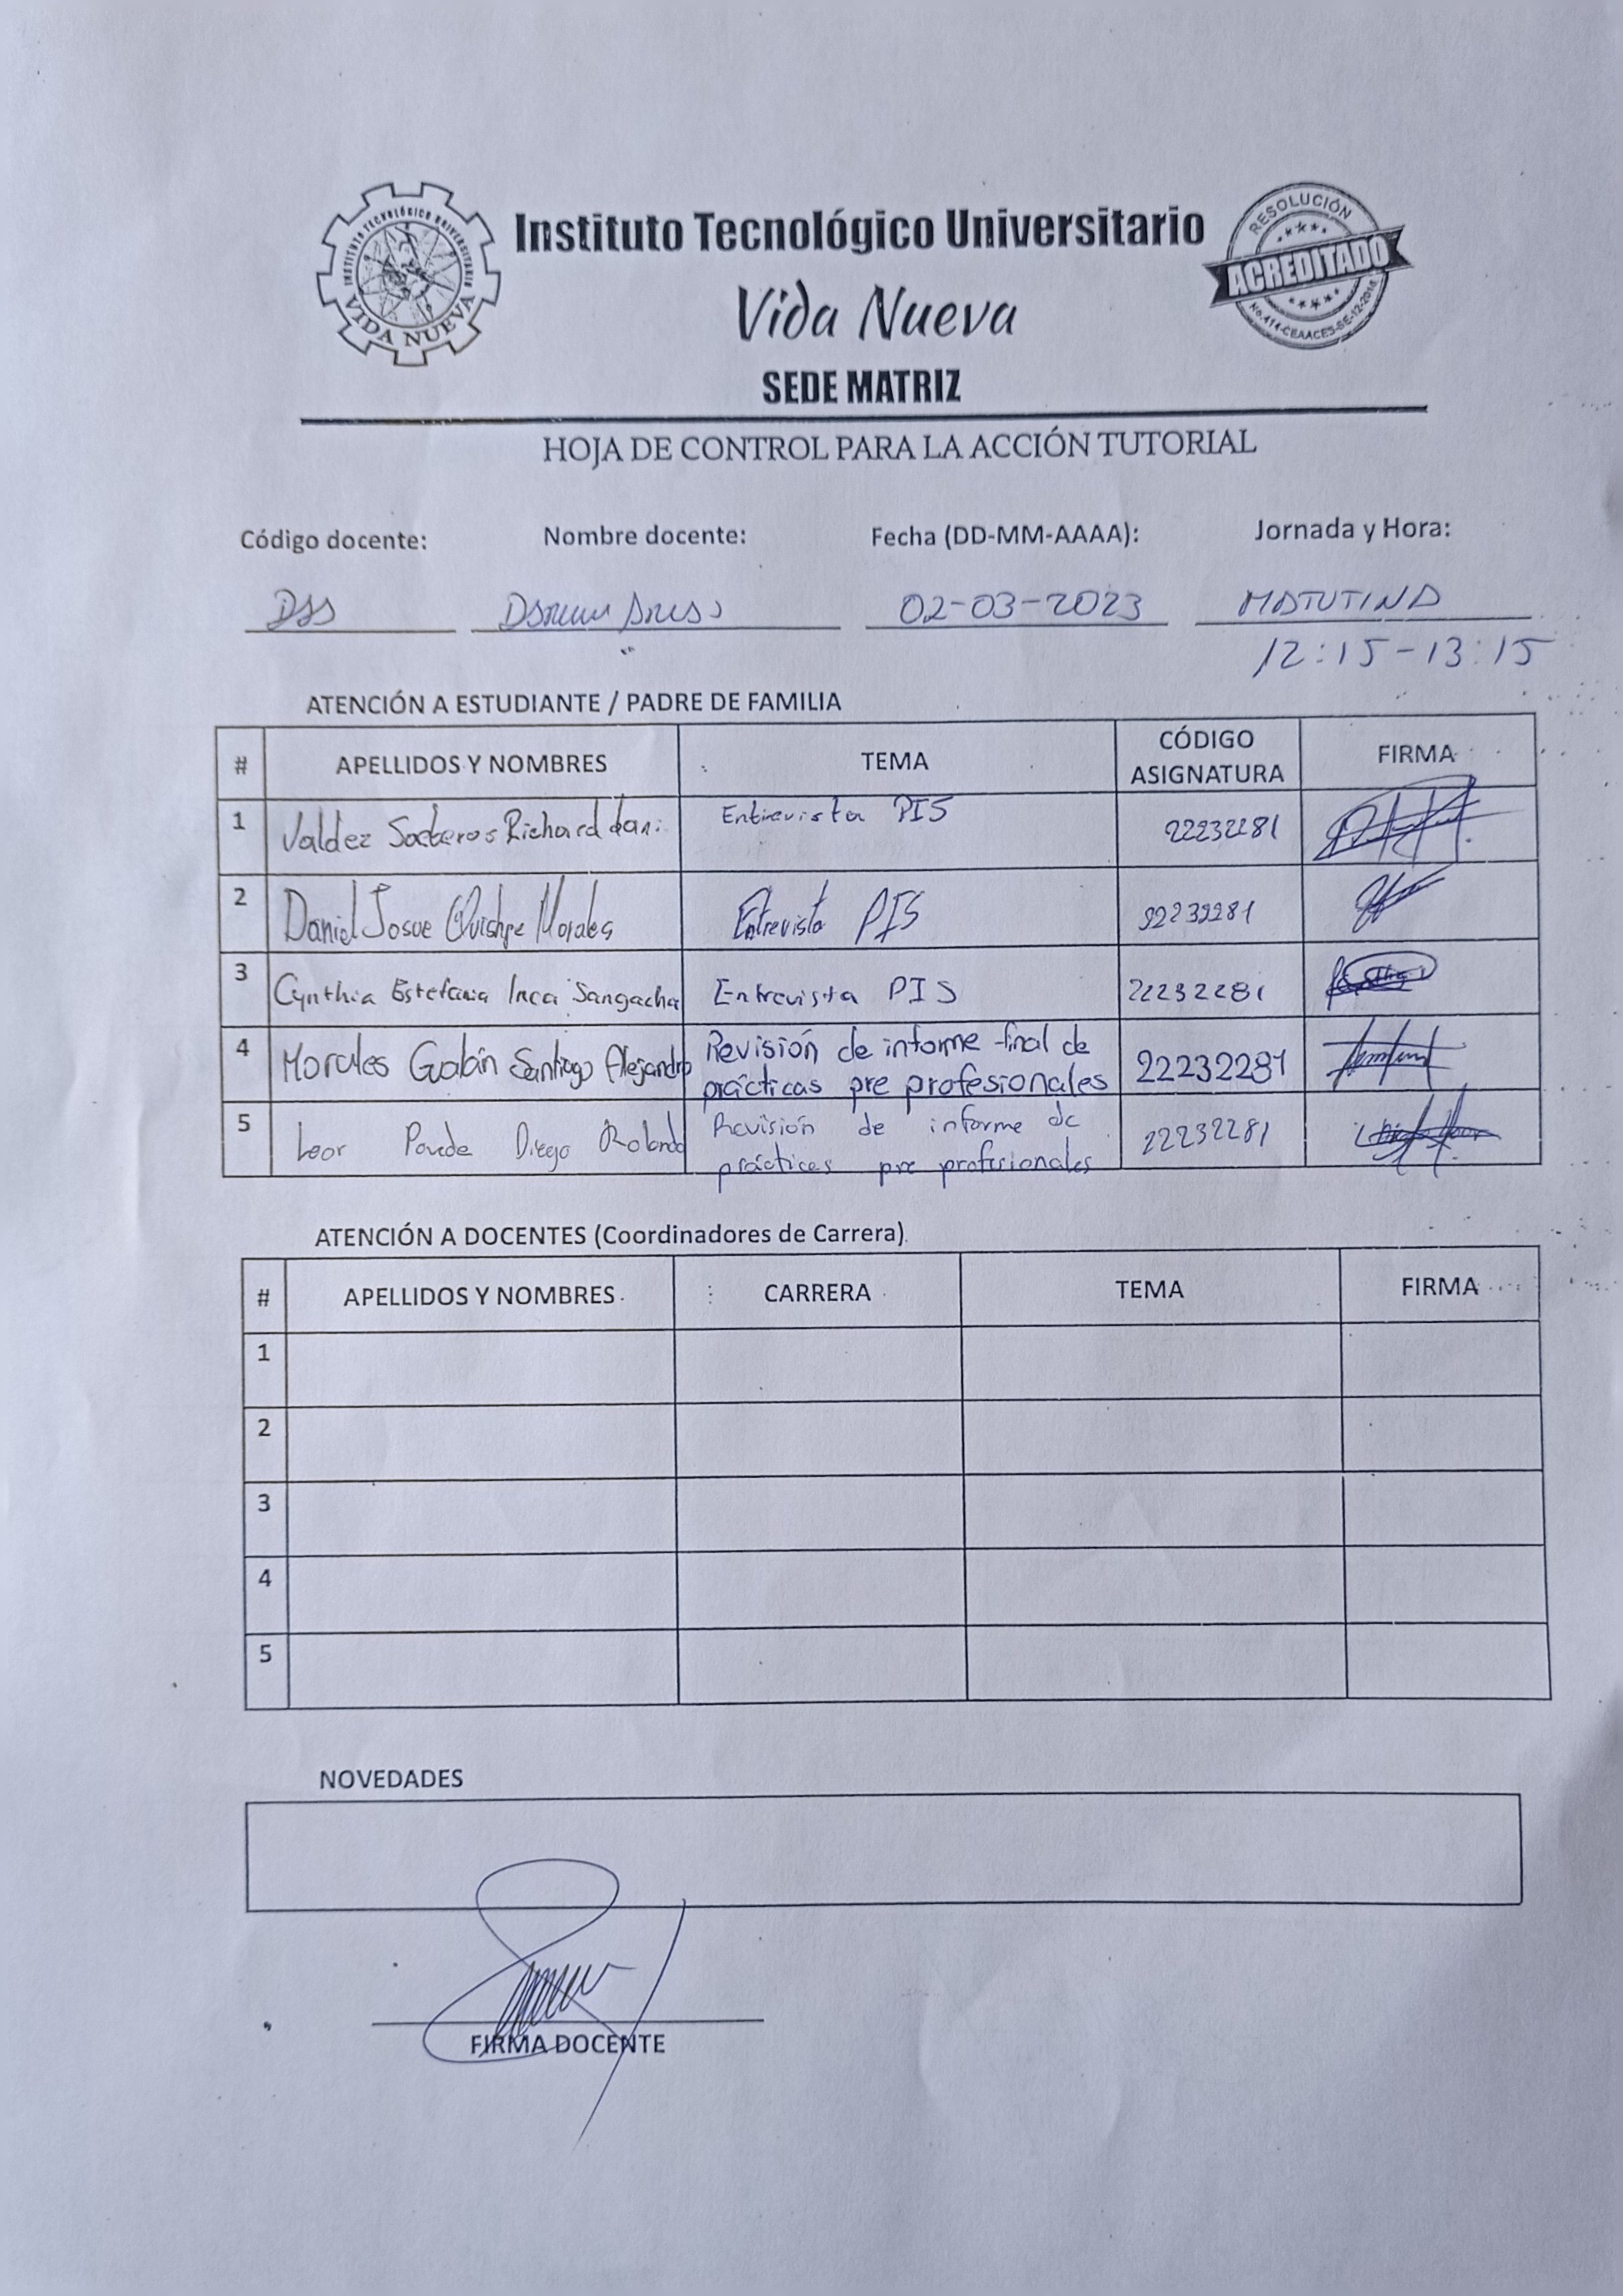 INSTITUTO TECNOLÓGICO UNIVERSITARIO
VIDA NUEVA
Instituto Tecnológico Universitario
Vida Nueva
SEDE MATRIZ
RESOLUCIÓN
ACREDITADO
HOJA DE CONTROL PARA LA ACCIÓN TUTORIAL
Código docente: Nombre docente: Fecha (DD-MM-AAAA): Jornada y Hora:
02-03-2023 MATUTINA
12:15-13:15
ATENCIÓN A ESTUDIANTE / PADRE DE FAMILIA
# APELLIDOS Y NOMBRES TEMA CÓDIGO ASIGNATURA FIRMA
1 Valdez Richard Entrevista PIS 22232281
2 Daniel Josue Quishpe Morales Entrevista PIS
3 Cynthia Estefania Inca Sangacha Entrevista PIS 22232281
4 Morales Galán Santiago Alejandro Revisión de informe final de
prácticas pre profesionales 22232281
5 Diego Rolando Revisión de informe de
prácticas pre profesionales 22232281
ATENCIÓN A DOCENTES (Coordinadores de Carrera)
# APELLIDOS Y NOMBRES CARRERA TEMA FIRMA
1
2
3
4
5
NOVEDADES
FIRMA DOCENTE